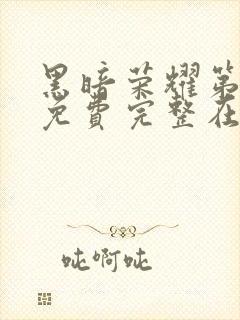 黑暗荣耀第
免費完整在
吔啊吔